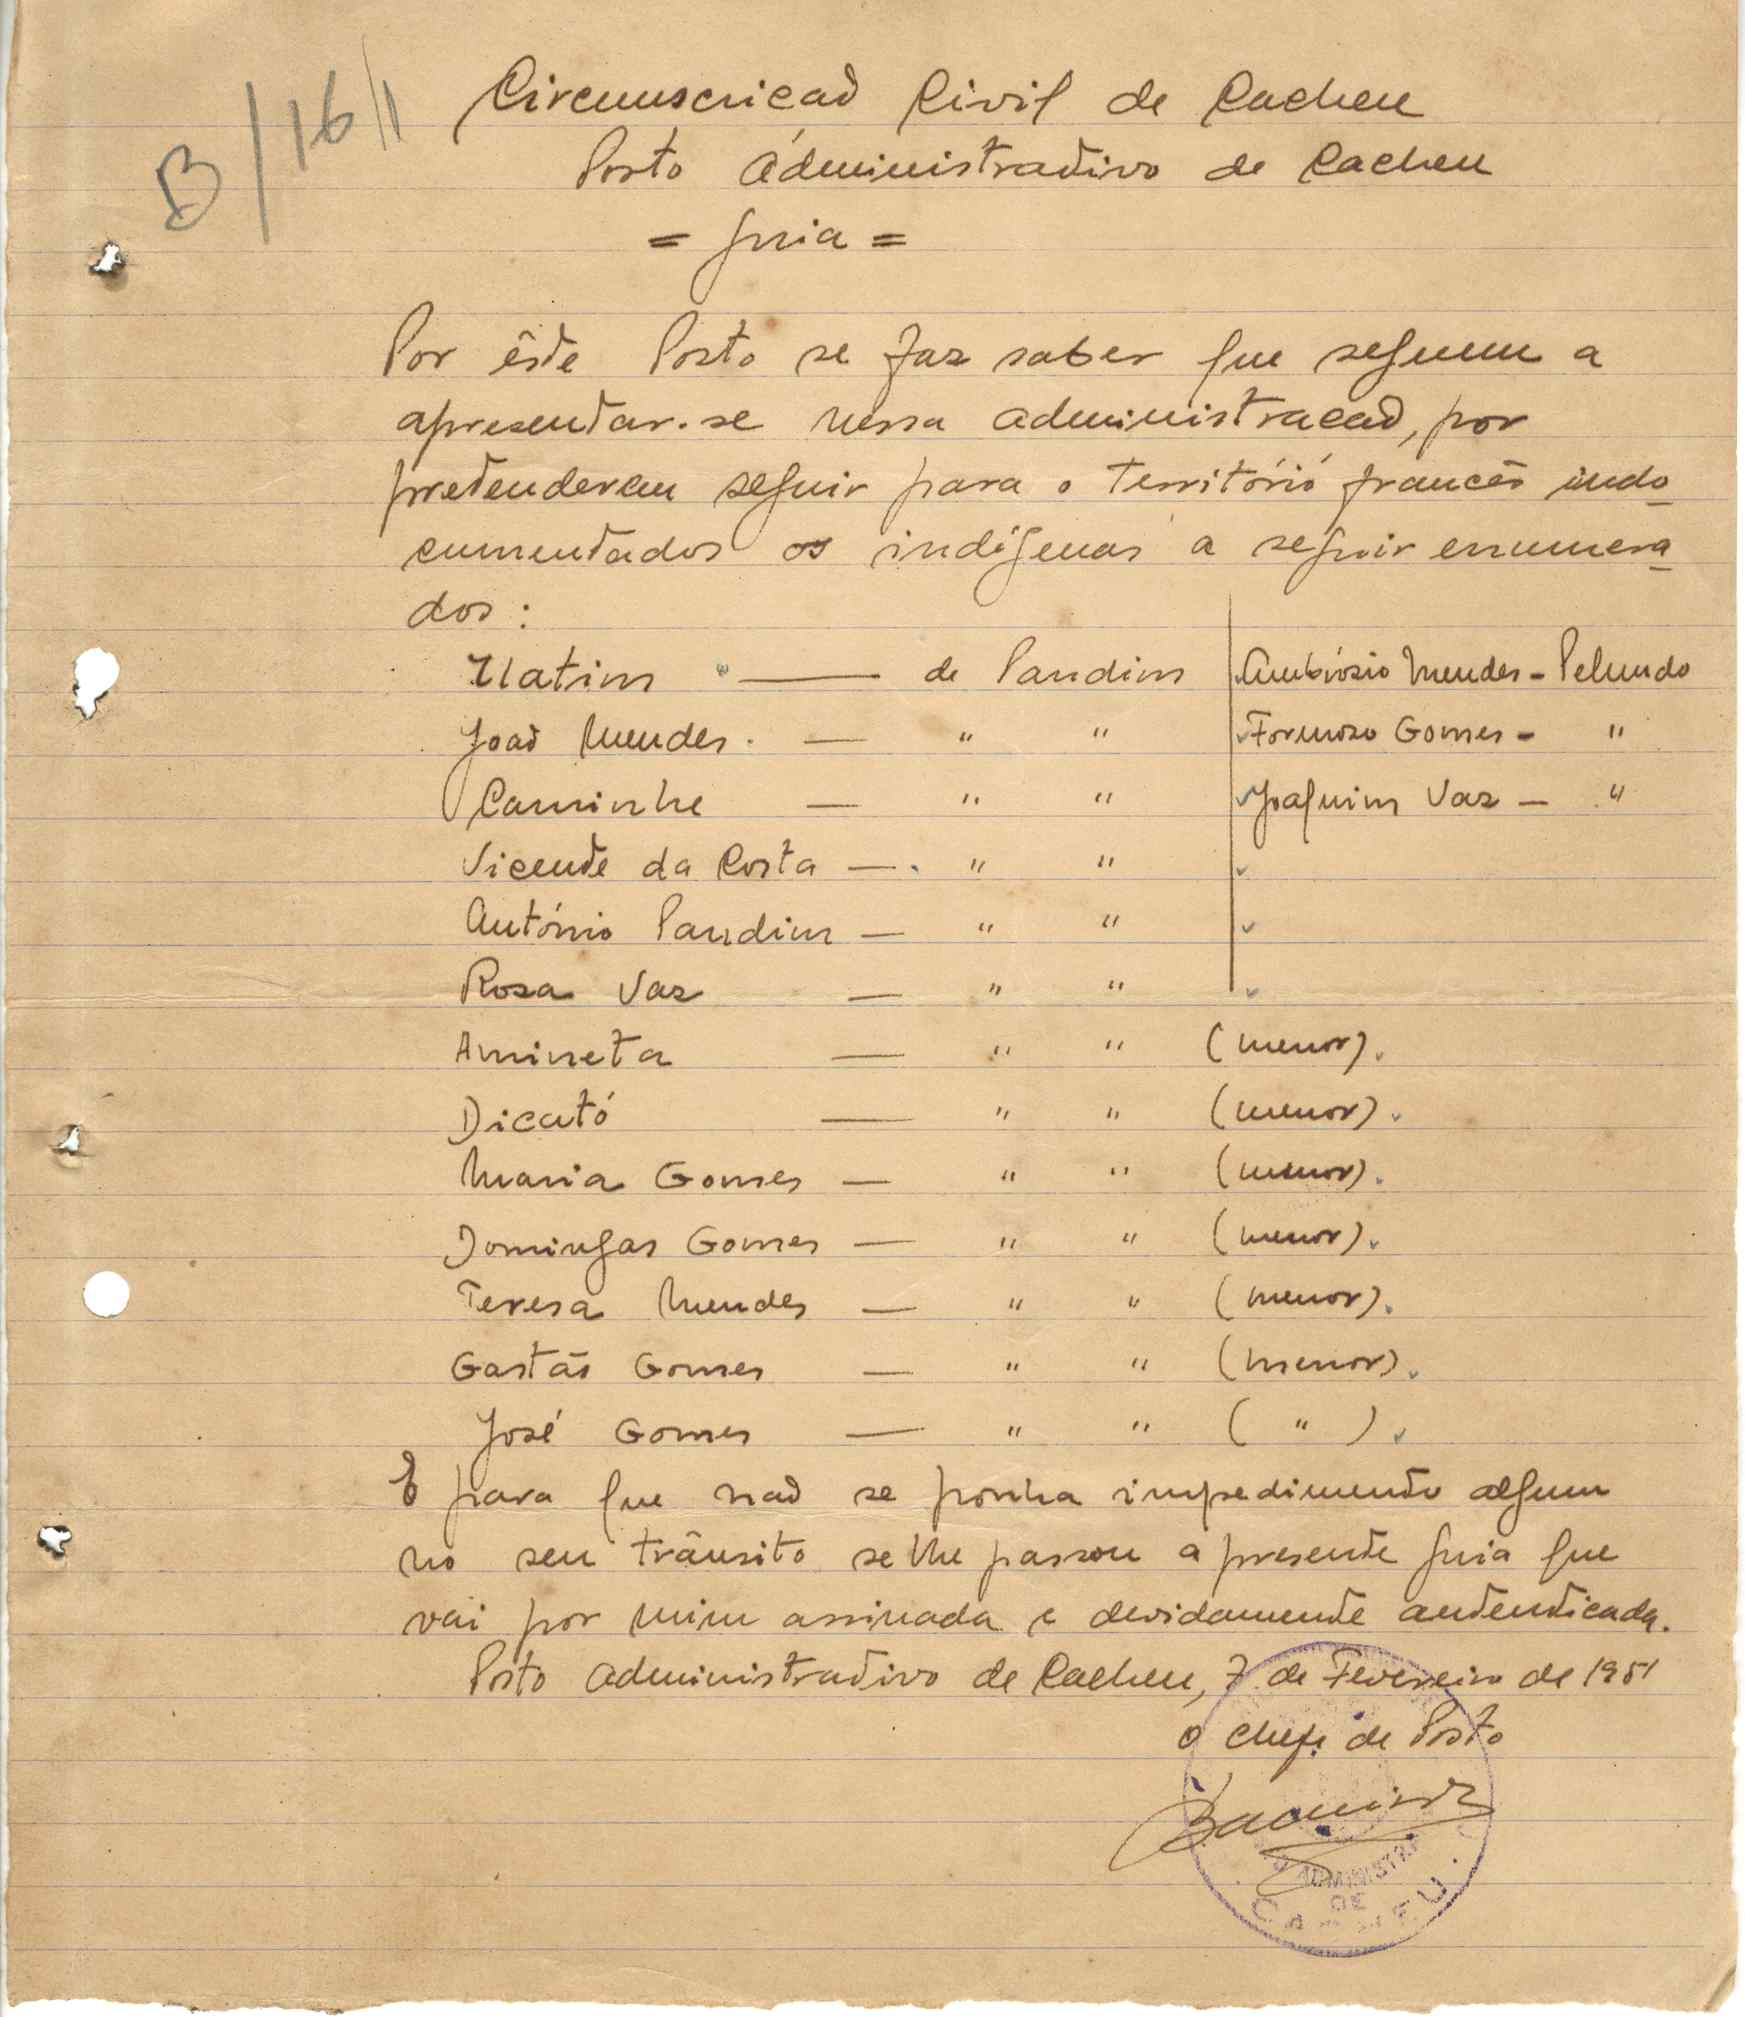 B/16//
Circunscricaõ Civil de Cacheu
Posto Administrativo de Cacheu
= Guia =
Por êste Posto se faz saber que seguem a
apresentar-se nessa administracaõ, por
pretenderem seguir para o território francês indo
cumentados os indígenas a seguir enumera
dos:
Natim — de Pandim | Ambrósio Mendes - Pelundo
Joaõ Mendes. — " " | Formozo Gomes - "
Caminhe — " " | Joaquim Vaz — "
Vicente da Costa — " "
António Pandim — " "
Rosa Vaz — " "
Amineta — " " (menor).
Dicató — " " (menor).
Maria Gomes — " " (menor).
Domingas Gomes — " " (menor).
Teresa Mendes — " " (menor).
Gastão Gomes — " " (menor).
José Gomes — " " ( " )
E para que naõ se ponha impedimento algum
no seu trânsito se lhe passou a presente guia que
vai por mim assinada e devidamente autenticada.
Posto Administrativo de Cacheu, 7 de Fevereiro de 1951
O Chefe de Posto
ADMINISTR
DE
CACHEU